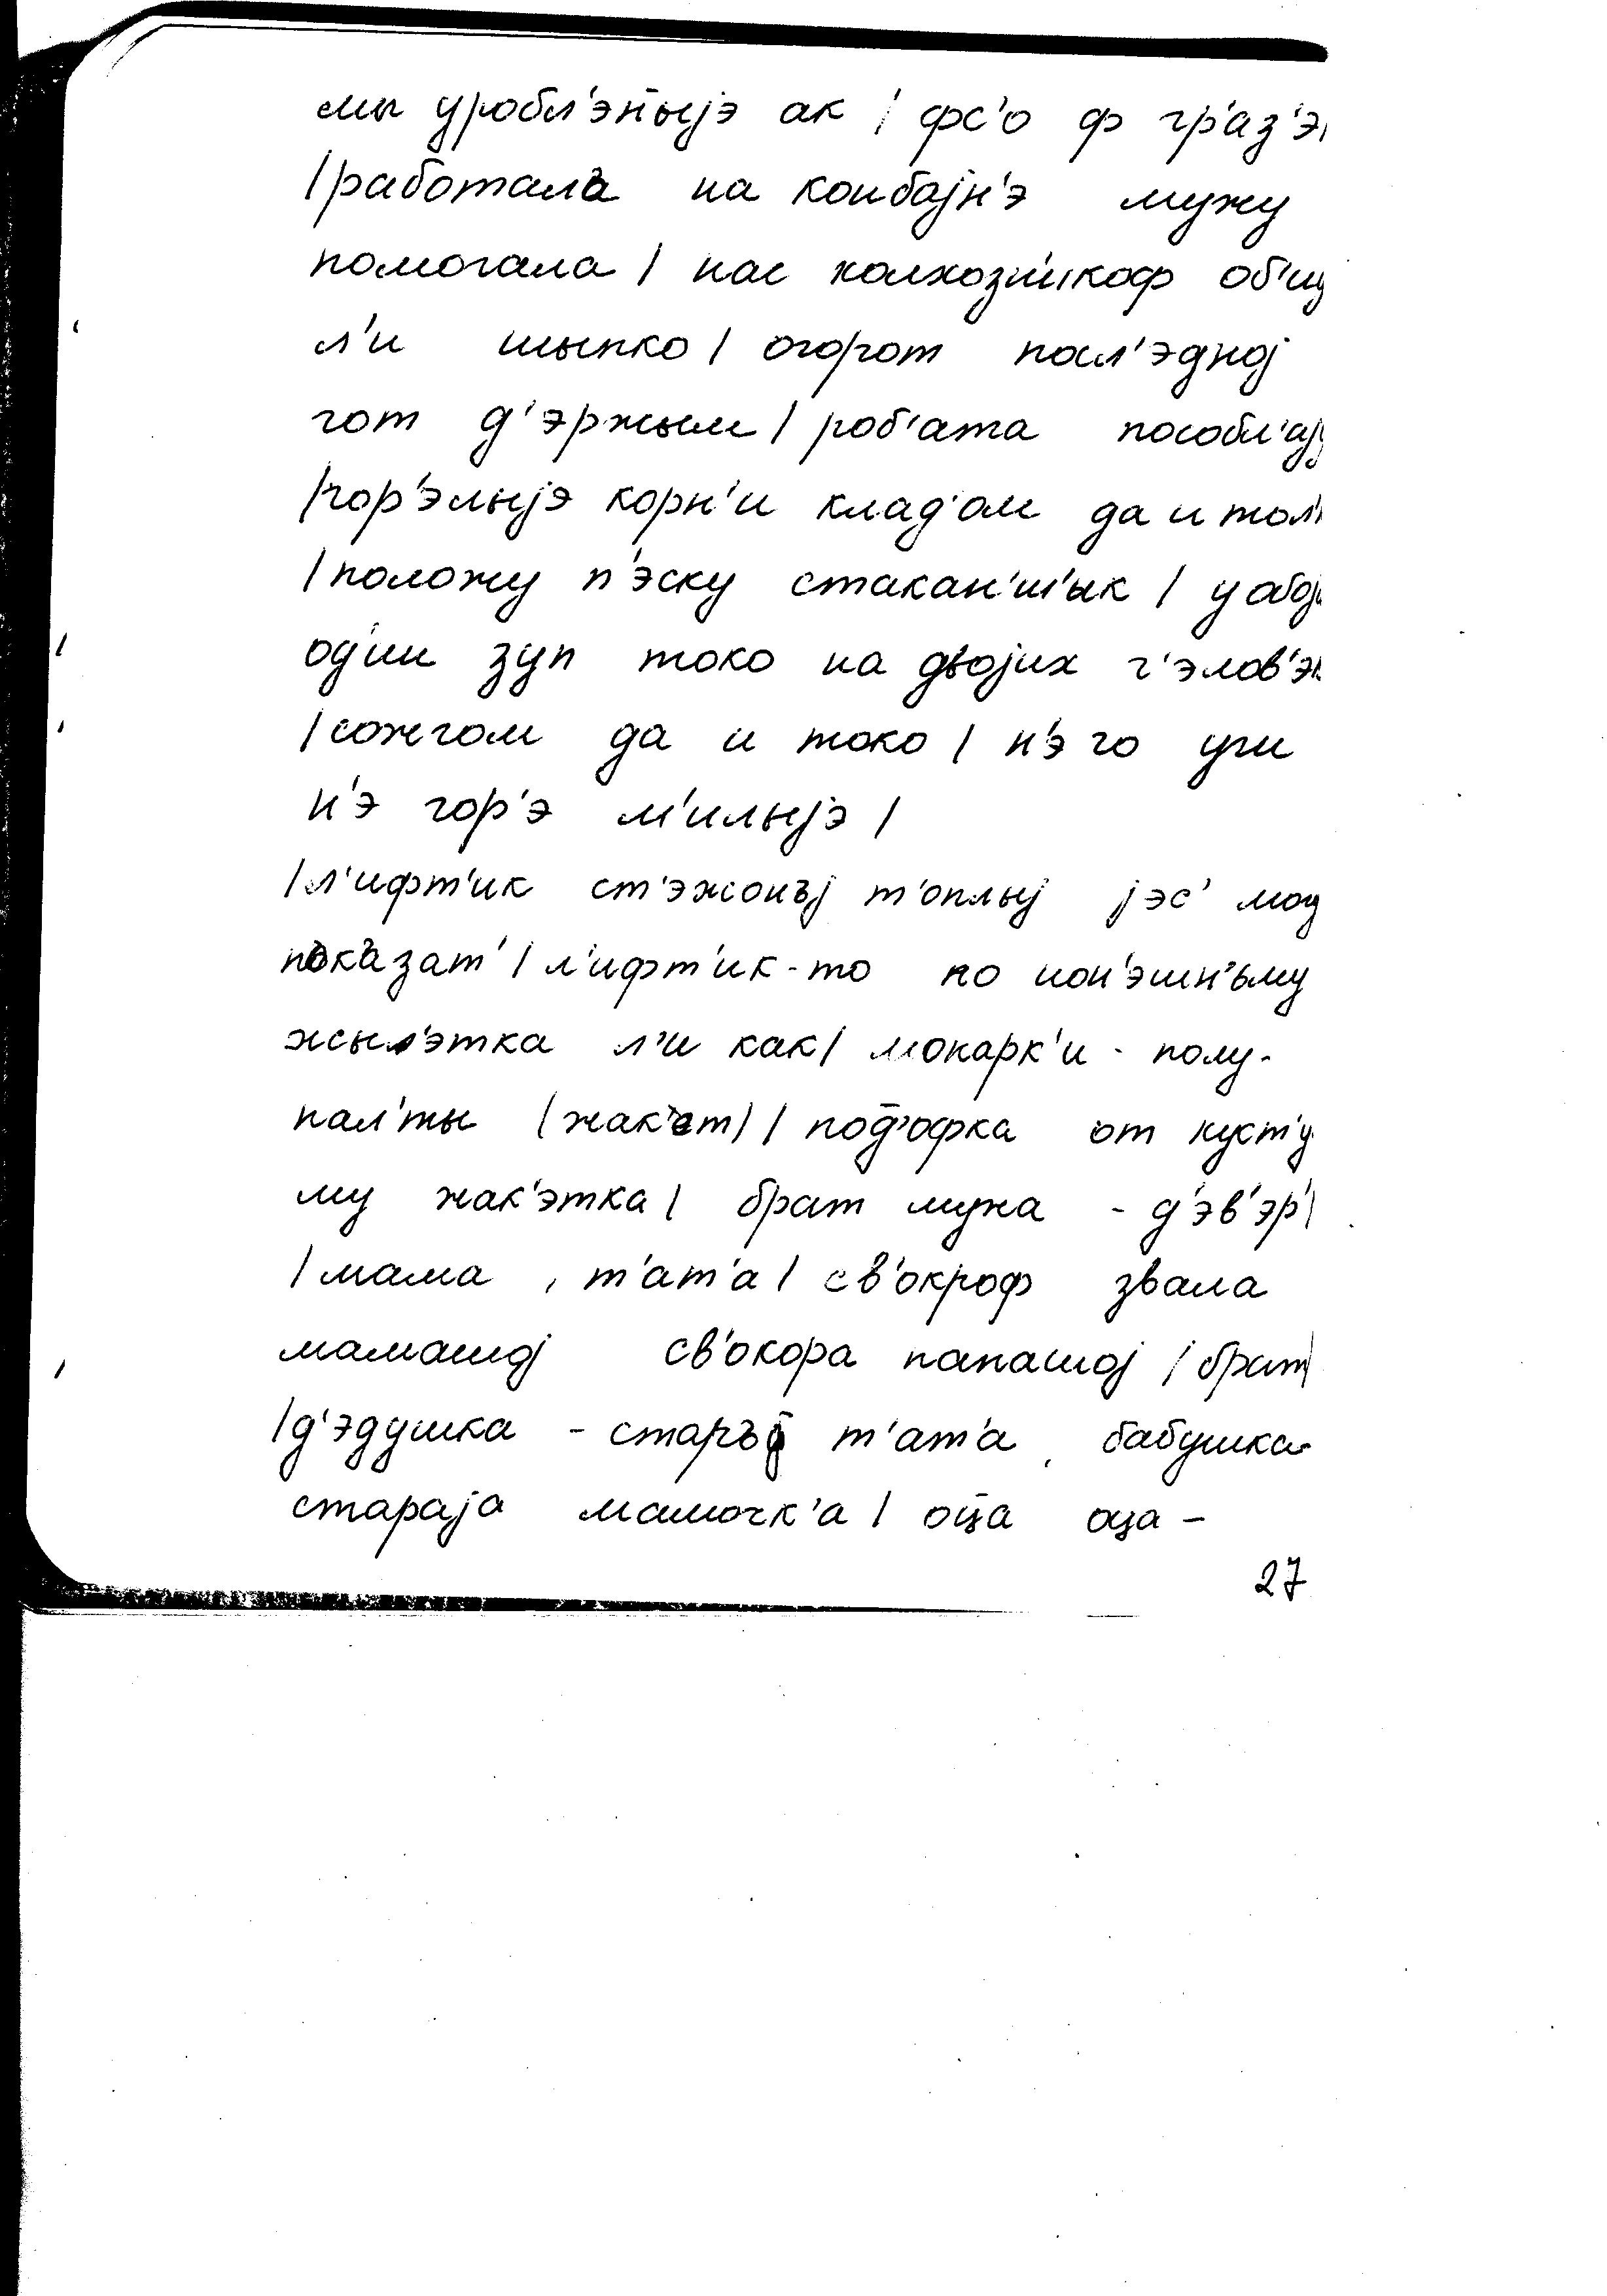 мы уробл'эныjэ ак | фс'о ф гр'аз'э
|работалa на конбаjн'э мужу
помогала | нас колхозн'икоф об'и
л'и шыпко | огорот посл'эдноj
гот д'эржым | роб'ата пособл'аj
|гор'элыjэ корн'и клад'ом да и тол
|положу п'эску стакан'ш'ык | у обој
од'ин зуп токо на двоjих ч'элов'э
|сожгом да и токо | н'э го уш
н'э гор'э м'илыjэ |
|л'ифт'ик ст'эжонъj т'оплыj jэс' моу
показат' | л'ифт'ик-то по нон'эшн'ьму
жыл'этка л'и как | монарк'и - полу-
пал'ты (жак'ет) | под'офка от куст'у
му жак'этка | брат мужа - д'эв'эр' |
|мама, т'ат'а | св'окроф звала
мамашоj св'окора папашоj | брат
|д'эдушка - старъj т'ат'а, бабушка-
стараjа мамочк'а | оца оца -
27